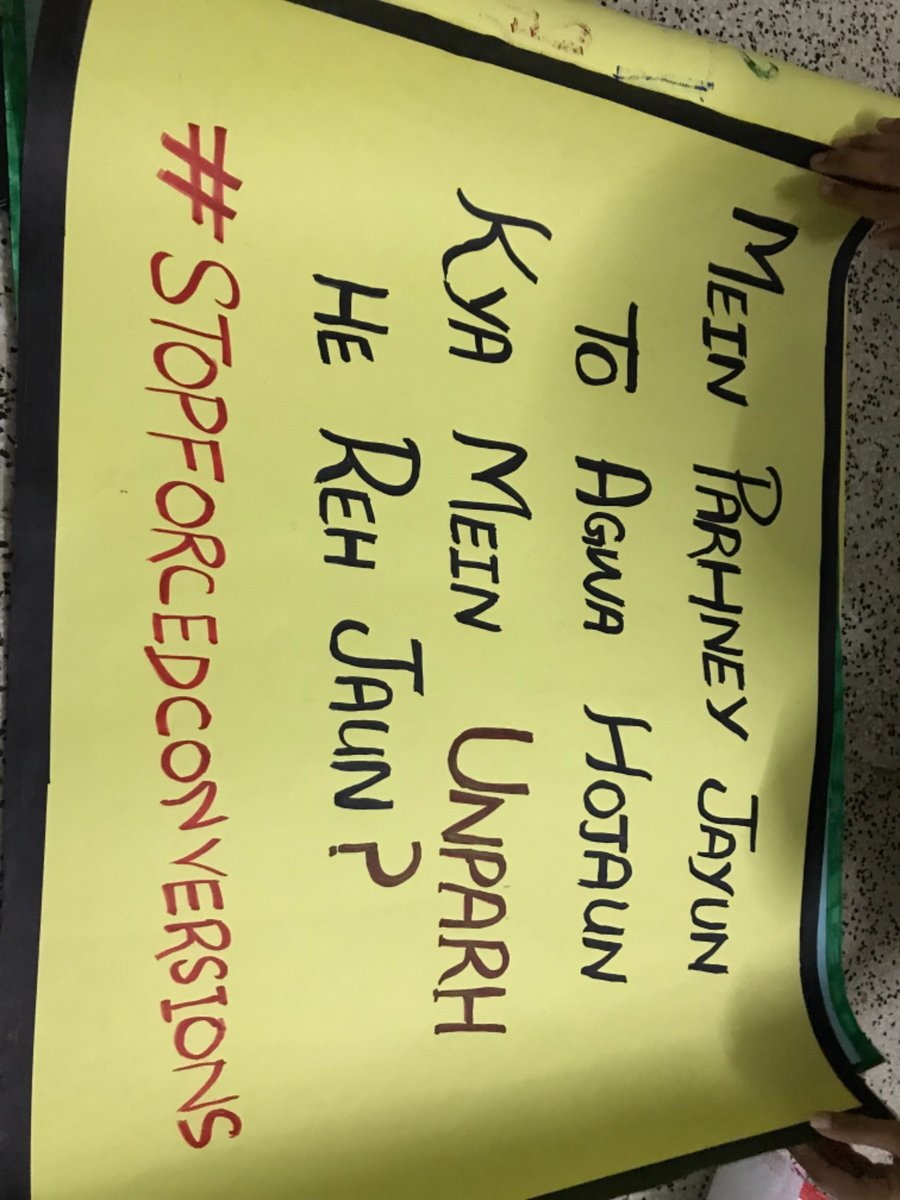 MEIN PARHNEY JAYUN
TO AGWA HOJAUN
KYA MEIN UNPARH
HE REH JAUN?
#STOPFORCEDCONVERSIONS